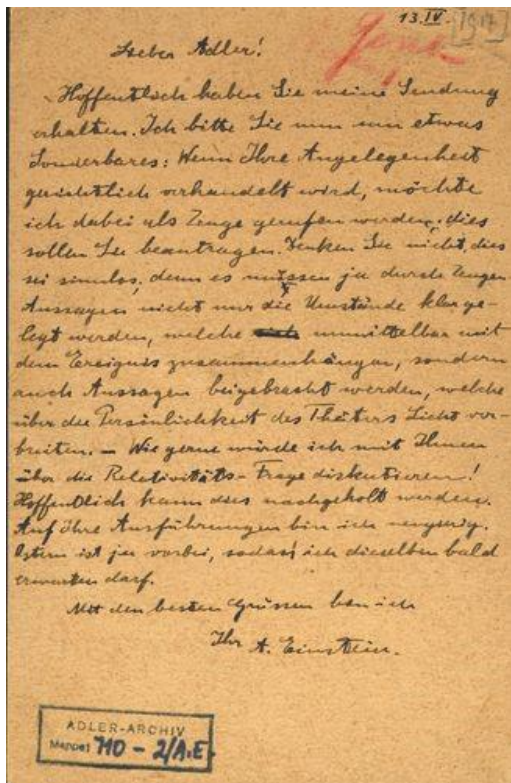 13.IV. [1917]
Lieber Adler!
Hoffentlich haben Sie meine Sendung
erhalten. Ich bitte Sie nun um etwas
Sonderbares: Wenn Ihre Angelegenheit
gerichtlich verhandelt wird, möchte
ich dabei als Zeuge gerufen werden; dies
sollen Sie beantragen. Denken Sie nicht, dies
sei sinnlos, denn es müssen ja durch Zeugen-
Aussagen nicht nur die Umstände klarge-
legt werden, welche unmittelbar mit
dem Ereignis zusammenhängen, sondern
auch Aussagen beigebracht werden, welche
über die Persönlichkeit des Thäters Licht ver-
breiten. – Wie gerne würde ich mit Ihnen
über die Relativitäts-Frage diskutieren!
Hoffentlich kann dies nachgeholt werden.
Auf Ihre Ausführungen bin ich neugierig.
Ostern ist ja vorbei, sodass ich dieselben bald
erwarten darf.
Mit den besten Grüssen bin ich
Ihr A. Einstein.
ADLER-ARCHIV
Mappe: 110 - 2/A.E.